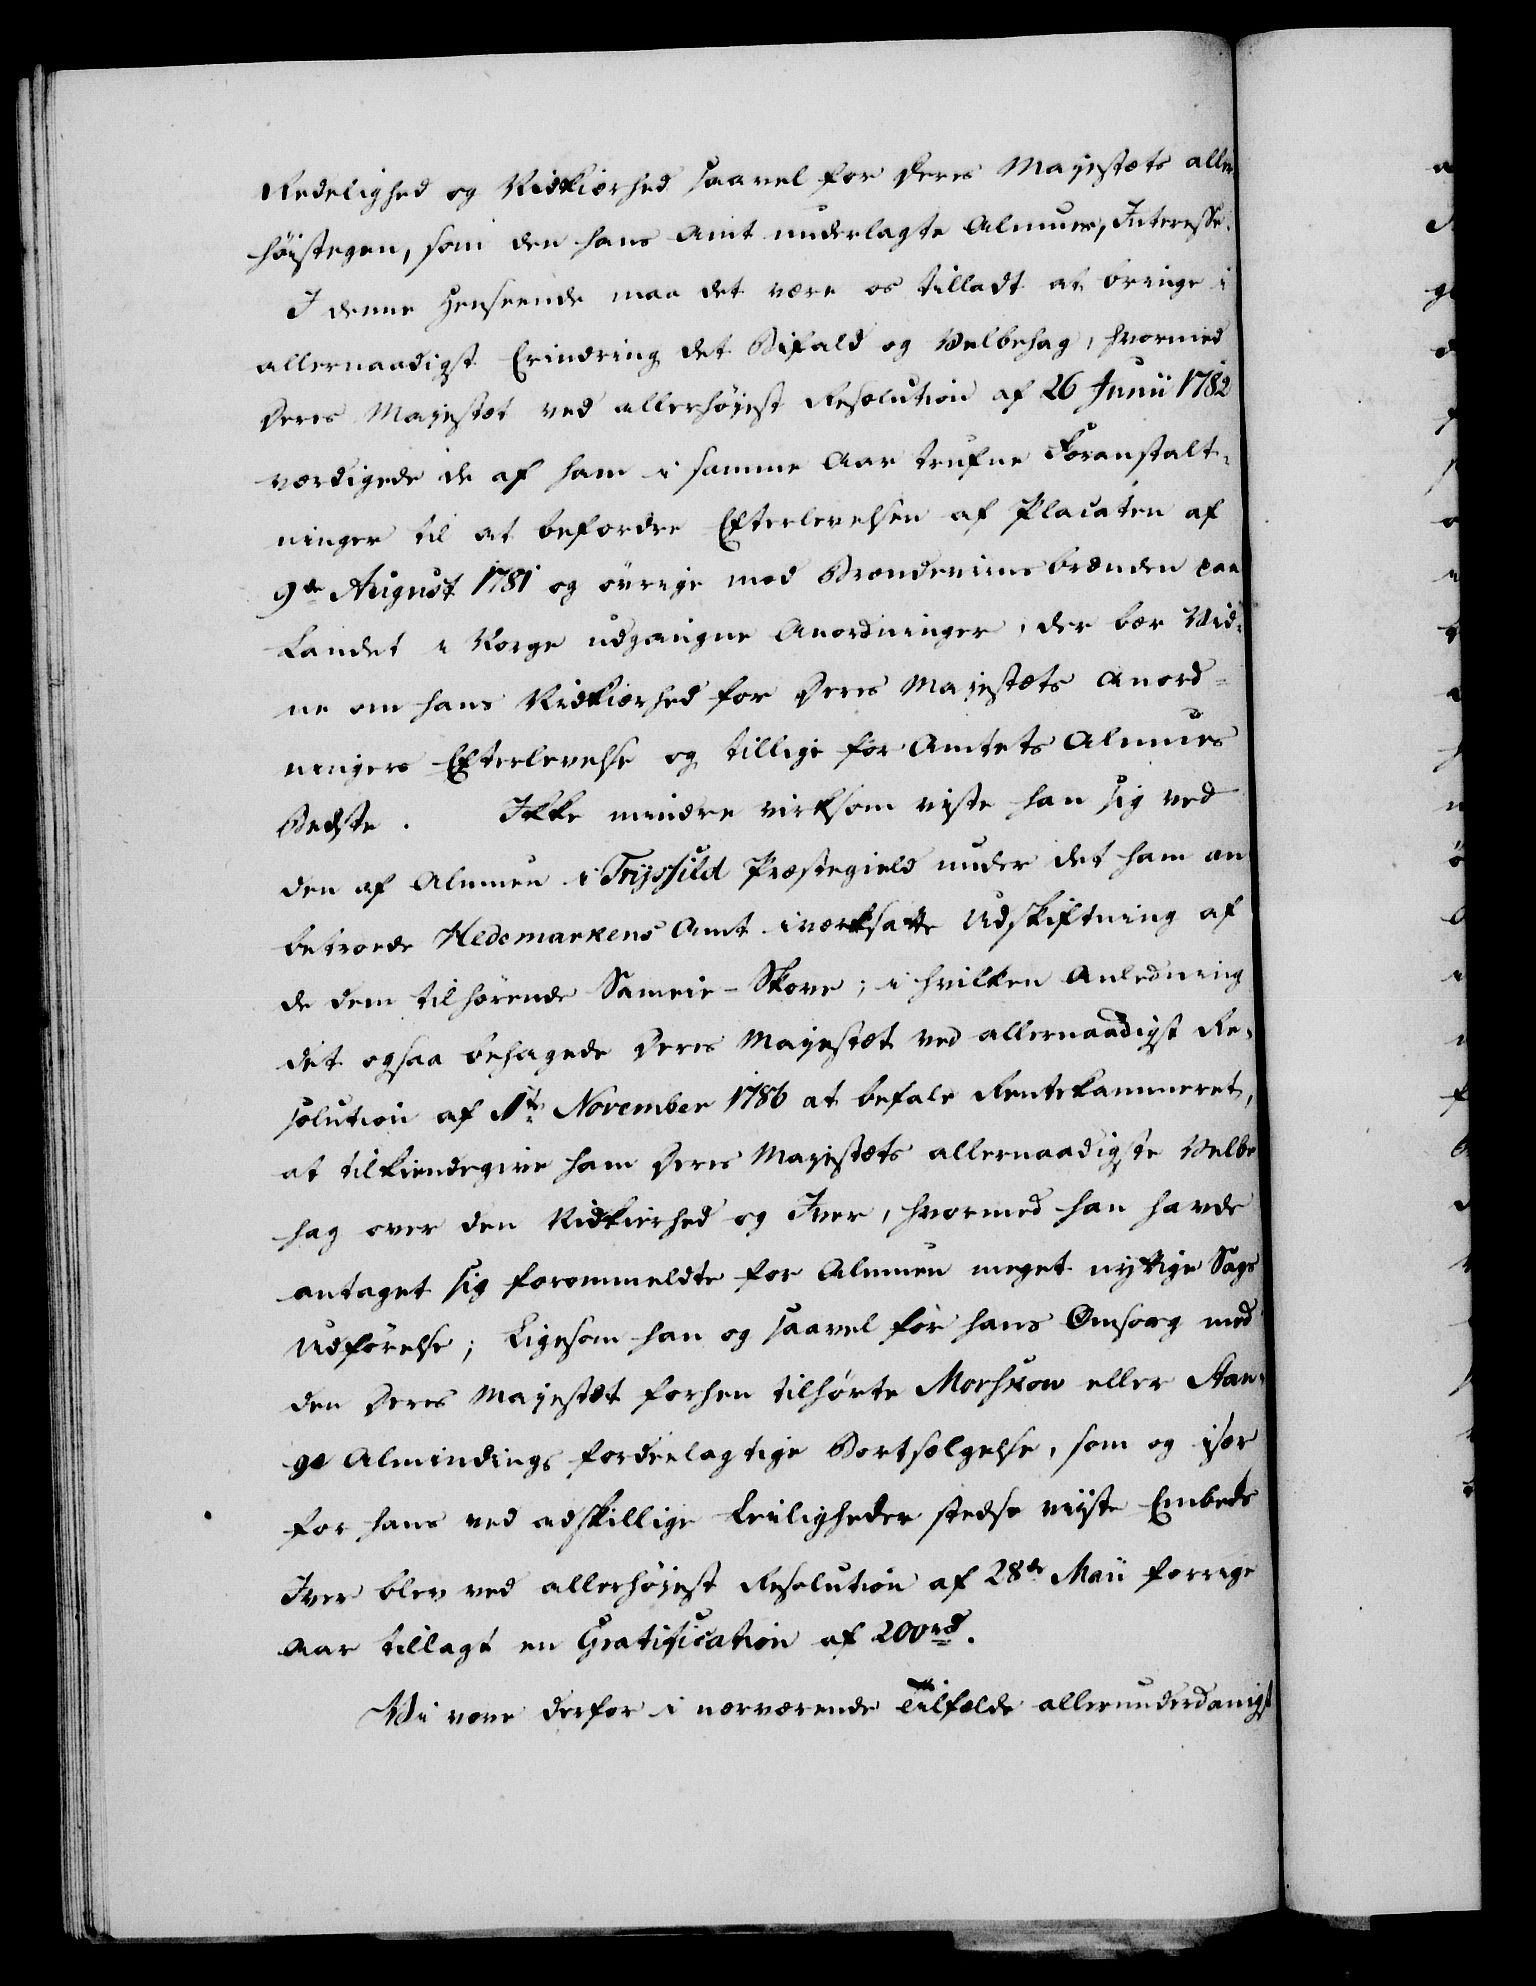 Redelighed og Nidkierhed saavel for Deres Majestæts aller
høistegen, som den hans Amt underlagte Almues, Interesse.
I denne Henseende maa det være os tilladt at bringe i
allernaadigst Erindring det Bifald og Velbehag, hvormed
Deres Majestæt ved allerhøjest Resolution af 26 Junii 1782
værdigede de af ham i samme Aar trufne Foranstalt-
ninger til at befordre Efterlevelsen af Placaten af
9de August 1781 og øvrige mod Brændeviinsbrænden paa
Landet i Norge udgangne Anordninger, der bær Vid-
ne om hans Nidkierhed for Deres Majestæts Anord-
ningers Efterlevelse og tillige for Amtets Almues
Bedste. Ikke mindre virksom viste han sig ved
den af Almuen i Tryssild Præstegield under det ham an
betroede Hedemarkens Amt iværksatte Udskiftning af
de dem tilhørende Sameie-Skove; i hvilken Anledning
det ogsaa behagede Deres Majestæt ved allernaadigst Re-
solution af 1te November 1786 at befale Rentekammeret,
at tilkiendegive ham Deres Majestæts allernaadigste Velbe
hag over den Nidkierhed og Iver, hvormed han havde
antaget sig forommeldte for Almuen meget nyttige Sags
Udførelse; Ligesom han og saavel for hans Omsorg med
den Deres Majestæt forhen tilhørte Morskow eller Stan-
ge Almindings fordeelagtige Bortsælgelse, som og især
for hans ved adskillige Leiligheder stedse viiste Embeds
Iver blev ved allerhøjest Resolution af 28de Maii forrige
Aar tillagt en Gratification af 200 rd.
Vi vove derfor i nærværende Tilfælde allerunderdanigst